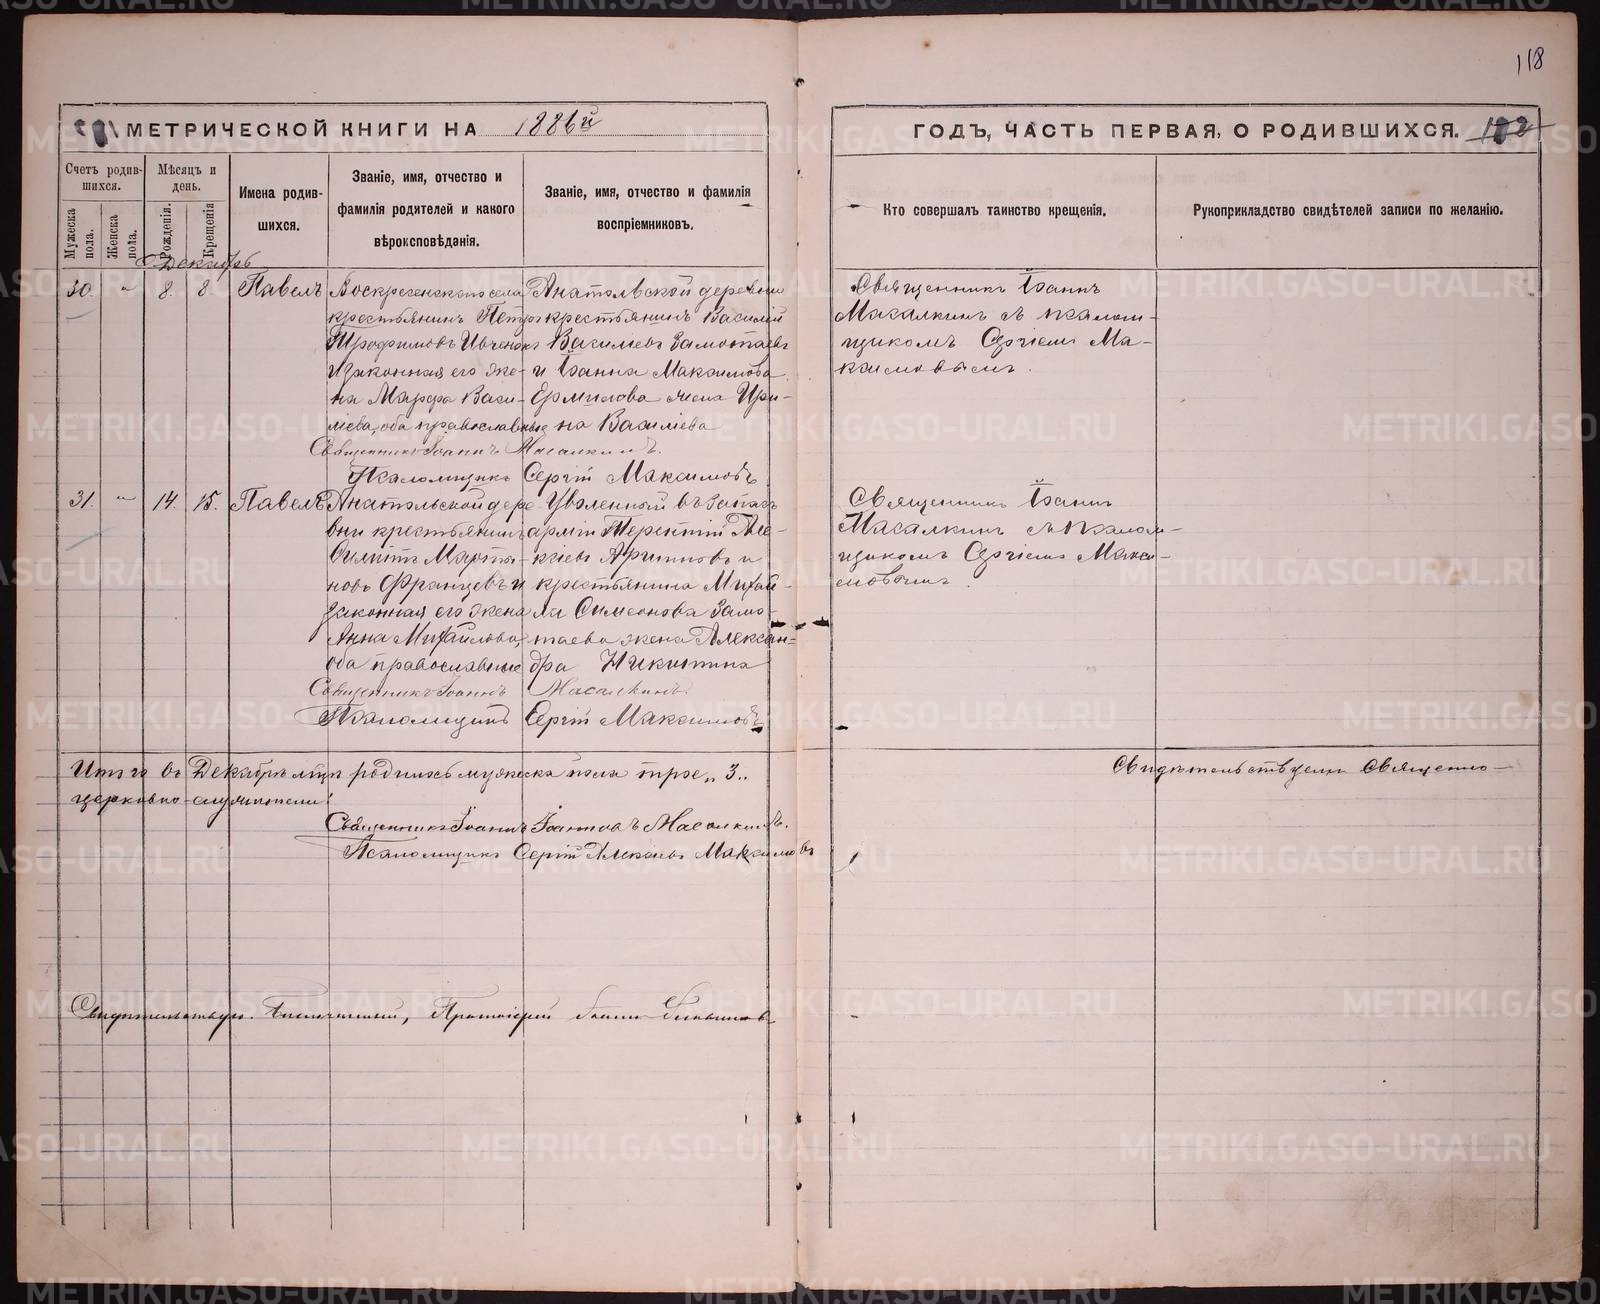 118
МЕТРИЧЕСКОЙ КНИГИ НА 1886й
ГОДЪ, ЧАСТЬ ПЕРВАЯ, О РОДИВШИХСЯ.
Счетъ родившихся.
Мужеска пола.
Женска пола.
Мѣсяцъ и день.
Рожденія.
Крещенія
Имена родившихся.
Званіе, имя, отчество и фамилія родителей и какого вѣроисповѣданія.
Званіе, имя, отчество и фамилія воспріемниковъ.
Кто совершалъ таинство крещенія.
Рукоприкладство свидѣтелей записи по желанію.
Декабрь
30. " 8. 8. Павелъ
Воскресенскаго села
крестьянинъ Петръ
Трофимовъ
и законная его же-
на Марѳа Васи-
ліева, оба православные
Анатольской деревни
крестьянинъ Василій
Василіевъ Замотаевъ
и Іоанна Максимова
Ермилова жена Ири-
на Василіева
Священникъ Іоаннъ
Масалкинъ съ псалом-
щикомъ Сергіемъ Ма-
ксимовымъ.
Священникъ Іоаннъ Масалкинъ.
Псаломщикъ Сергій Максимовъ.
31. " 14. 15. Павелъ
Анатольской дере
вни крестьянинъ
Марты-
новъ Францевъ и
законная его жена
Анна Михайлова,
оба православные
Уволенный въ запасъ
арміи Терентій Але-
ксіевъ и
крестьянина Михаи-
ла Симеонова Замо-
таева жена Алексан-
дра Никитина
Священникъ Іоаннъ
Масалкинъ съ псалом-
щикомъ Сергіемъ Макси-
мовымъ.
Священникъ Іоаннъ Масалкинъ.
Псаломщикъ Сергій Максимовъ
Итого въ Декабрѣ м-цѣ родилось мужеска пола трое „ 3 „
Свидѣтельствуемъ Священно-
церковно-служители:
Священникъ Іоаннъ Іоанновъ Масалкинъ.
Псаломщикъ Сергій Алексіевъ Максимовъ
Свидѣтельствую. Благочинный, Протоіерей
METRIKI.GASO-URAL.RU